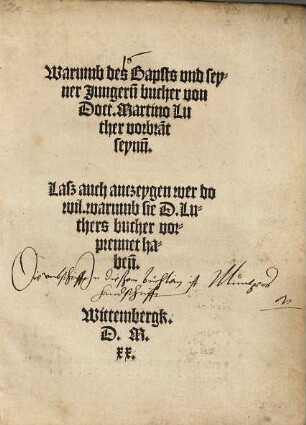 Warumb des Bapsts vnd sey⸗
ner Jungernn bucher von
Doct. Martino Lu
ther vorbrāt
seynn.
Lasz auch anczeygen wer do
wil. warumb sie D. Lu⸗
thers bucher vor⸗
prennet ha⸗
benn.
in diesem büchlein ist
handschrifft
Wittembergk.
D. M.
xx.